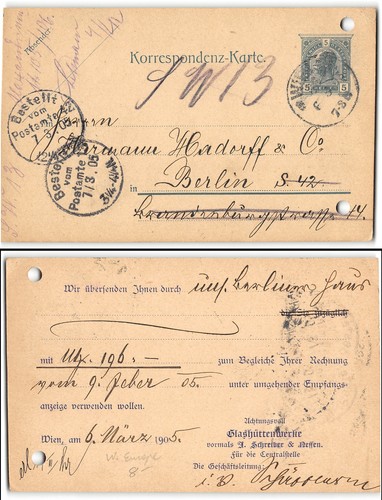 Korrespondenz-Karte.
5 5
SW 13
Bestellt
vom
Postamte 42
7/3.05
Bestellt
vom
Postamte
7/3.05
3¼-4¼N.
Hermann Hadorff & Co.
in Berlin S. 42
Brandenburgstrasse 14.
Wir übersenden Ihnen durch uns. Berliner Haus
mit Mk. 196.— zum Begleiche Ihrer Rechnung
vom 9. Feber 05. unter umgehender Empfangs-
anzeige verwenden wollen.
Wien, am 6. März 1905.
Achtungsvoll
Glashüttenwerke
vormals J. Schreiber & Neffen.
Für die Centralstelle
Die Geschäftsleitung:
i. V.
8-